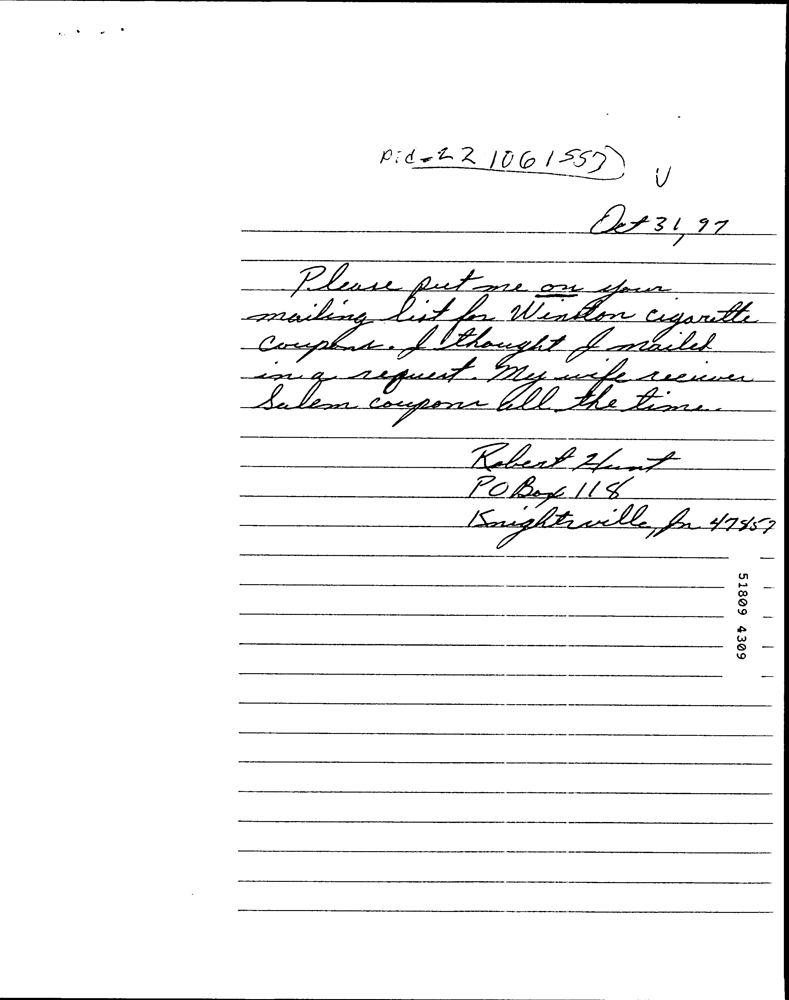 pid-22 1061557
U
Oct 31, 97
Please put me on your
mailing list for Winston cigarette
coupons. I thought I mailed
in a request. My wife receives
Salem coupons all the time.
Robert Hunt
PO Box 118
Knightsville, In 47857
51809 4309